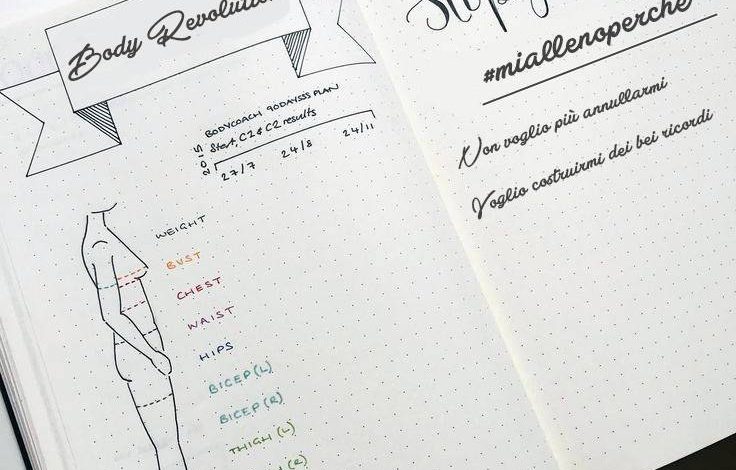 Body Revolution
2015
BODYCOACH 90DAYSSS PLAN
Start, C2 & C2 results
27/7 24/8 24/11
WEIGHT
BUST
CHEST
WAIST
HIPS
BICEP(L)
BICEP(R)
THIGH (L)
(R)
#miallenoperchè
Non voglio più annullarmi
Voglio costruirmi dei bei ricordi